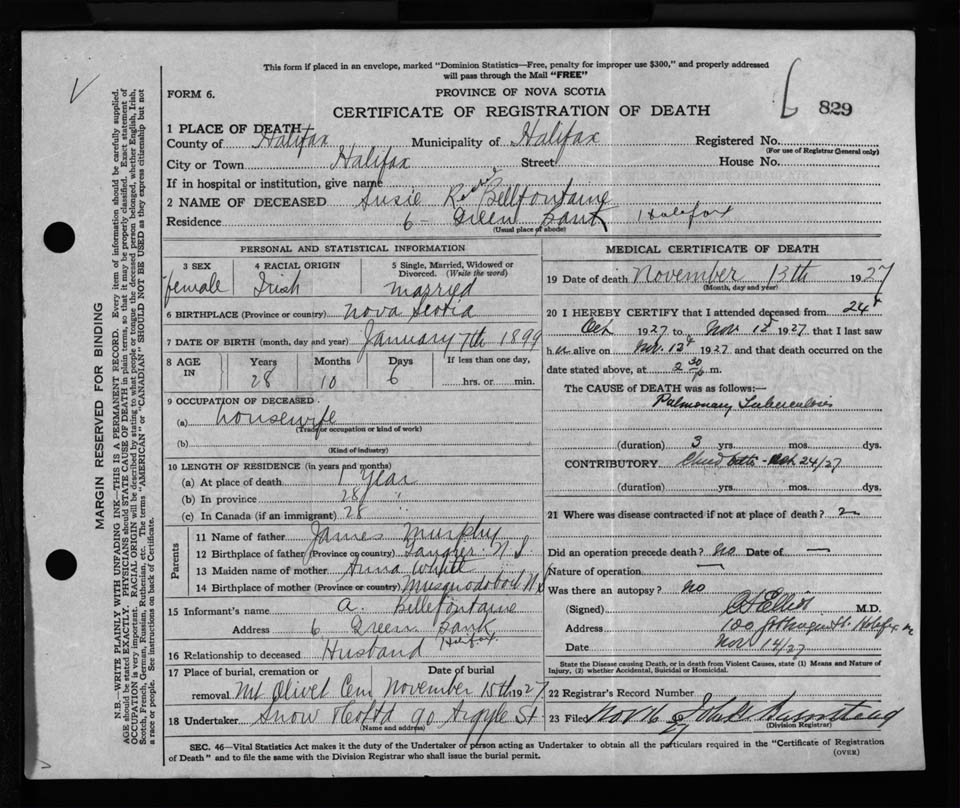 This form if placed in an envelope, marked "Dominion Statistics—Free, penalty for improper use $300," and properly addressed
will pass through the Mail "FREE"
FORM 6.
PROVINCE OF NOVA SCOTIA
829
CERTIFICATE OF REGISTRATION OF DEATH
1 PLACE OF DEATH
County of Halifax Municipality of Halifax Registered No.
(For use of Registrar General only)
City or Town Halifax Street House No.
If in hospital or institution, give name
2 NAME OF DECEASED Susie Bellfontaine
Residence 6 - Green Bank Halifax
(Usual place of abode)
PERSONAL AND STATISTICAL INFORMATION
3 SEX female
4 RACIAL ORIGIN Irish
5 Single, Married, Widowed or Divorced. (Write the word) married
6 BIRTHPLACE (Province or country) Nova Scotia
7 DATE OF BIRTH (month, day and year) January 7th 1899
8 AGE IN Years Months Days If less than one day,
28 10 6 hrs. or min.
9 OCCUPATION OF DECEASED
(a) housewife
(Trade or occupation or kind of work)
(b)
(Kind of industry)
10 LENGTH OF RESIDENCE (in years and months)
(a) At place of death 1 Year
(b) In province 28 "
(c) In Canada (if an immigrant) 28 "
Parents
11 Name of father James Murphy
12 Birthplace of father (Province or country) N S
13 Maiden name of mother Anna White
14 Birthplace of mother (Province or country) Musquodoboit N S
15 Informant's name A. Bellefontaine
Address 6 Green Bank Halifax
16 Relationship to deceased Husband
17 Place of burial, cremation or removal Mt Olivet Cem Date of burial November 15th 1927
18 Undertaker Snow & Co Ltd 90 Argyle St
(Name and address)
MEDICAL CERTIFICATE OF DEATH
19 Date of death November 13th 1927
(Month, day and year)
20 I HEREBY CERTIFY that I attended deceased from 24th
Oct 1927 to Nov 12th 1927 that I last saw
her alive on Nov. 12th 1927 and that death occurred on the
date stated above, at 2 30 m.
The CAUSE of DEATH was as follows:—
Pulmonary Tuberculosis
(duration) 3 yrs. mos. dys.
CONTRIBUTORY Child birth - Oct 24/27
(duration) yrs. mos. dys.
21 Where was disease contracted if not at place of death?
Did an operation precede death? no Date of —
Nature of operation —
Was there an autopsy? no
(Signed) Elliot M.D.
Address 100 Halifax
Date Nov 14/27
State the Disease causing Death, or in Death from Violent Causes, state (1) Means and Nature of
Injury, (2) whether Accidental, Suicidal or Homicidal.
22 Registrar's Record Number
23 Filed Nov 16 27
(Division Registrar)
SEC. 46—Vital Statistics Act makes it the duty of the Undertaker or person acting as Undertaker to obtain all the particulars required in the "Certificate of Registration
of Death" and to file the same with the Division Registrar who shall issue the burial permit.
(OVER)
MARGIN RESERVED FOR BINDING
N.B.—WRITE PLAINLY WITH UNFADING INK—THIS IS A PERMANENT RECORD. Every item of information should be carefully supplied.
AGE should be stated EXACTLY. PHYSICIANS should STATE CAUSE OF DEATH in plain terms, so that it may be properly classified. Exact statement of
OCCUPATION is very important. RACIAL ORIGIN will be described by stating to what people or tongue the deceased person belonged, whether English, Irish,
Scotch, French, German, Russian, Ruthenian, etc. The terms "AMERICAN" or "CANADIAN" SHOULD NOT BE USED as they express citizenship but not
a race or people. See instructions on back of Certificate.